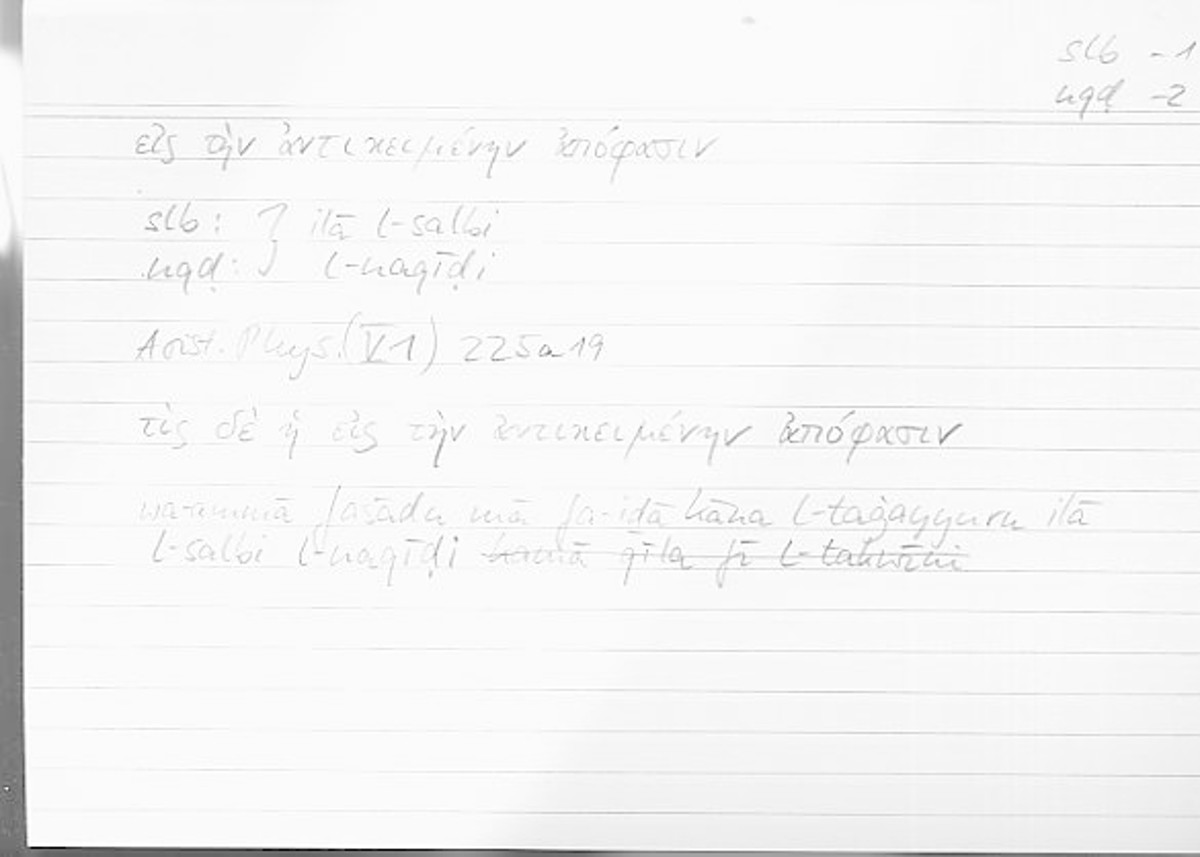 slb -1
nqḍ -2
εἰς τὴν ἀντικειμένην ἀπόφασιν
slb: } ilā l-salbi
nqḍ: } l-naqīḍi
Arist. Phys. (V 1) 225a19
τὶς δὲ ἡ εἰς τὴν ἀντικειμένην ἀπόφασιν
wa-ammā fasādu mā fa-iḏā kāna l-taġayyuru ilā
l-salbi l-naqīḍi kamā qīla fī l-takwīni